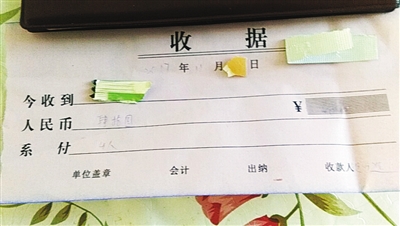 收 据
年 月 日
今收到 ¥
人民币
系 付
单位盖章 会计 出纳 收款人